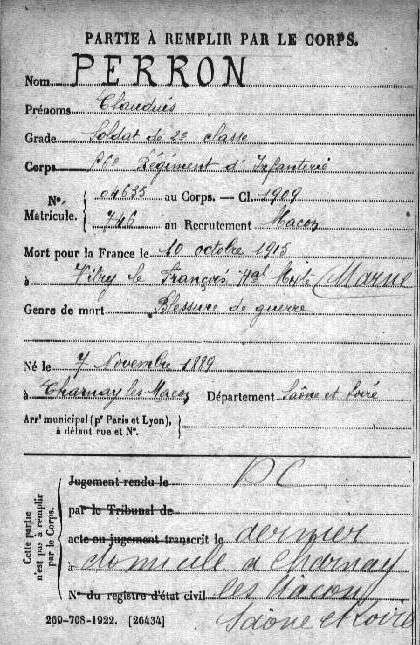 PARTIE À REMPLIR PAR LE CORPS.
Nom PERRON
Prénoms Claudius
Grade Soldat de 2e classe
Corps Régiment d'Infanterie
N° 04635 au Corps. — Cl. 1909
Matricule. 746 au Recrutement Macon
Mort pour la France le 10 octobre 1915
à Vitry le François (Marne
Genre de mort Blessure de guerre
Né le 7 Novembre 1889
à Charnay les Macon Département Saône et Loire
Arrt municipal (pr Paris et Lyon),
à défaut rue et N°.
Cette partie
n'est pas à remplir
par le Corps.
Jugement rendu le
par le Tribunal de
acte ou jugement transcrit le dernier
à domicile à Charnay
les Macon
N° du registre d'état civil
Saône et Loire
269-708-1922. [26434]